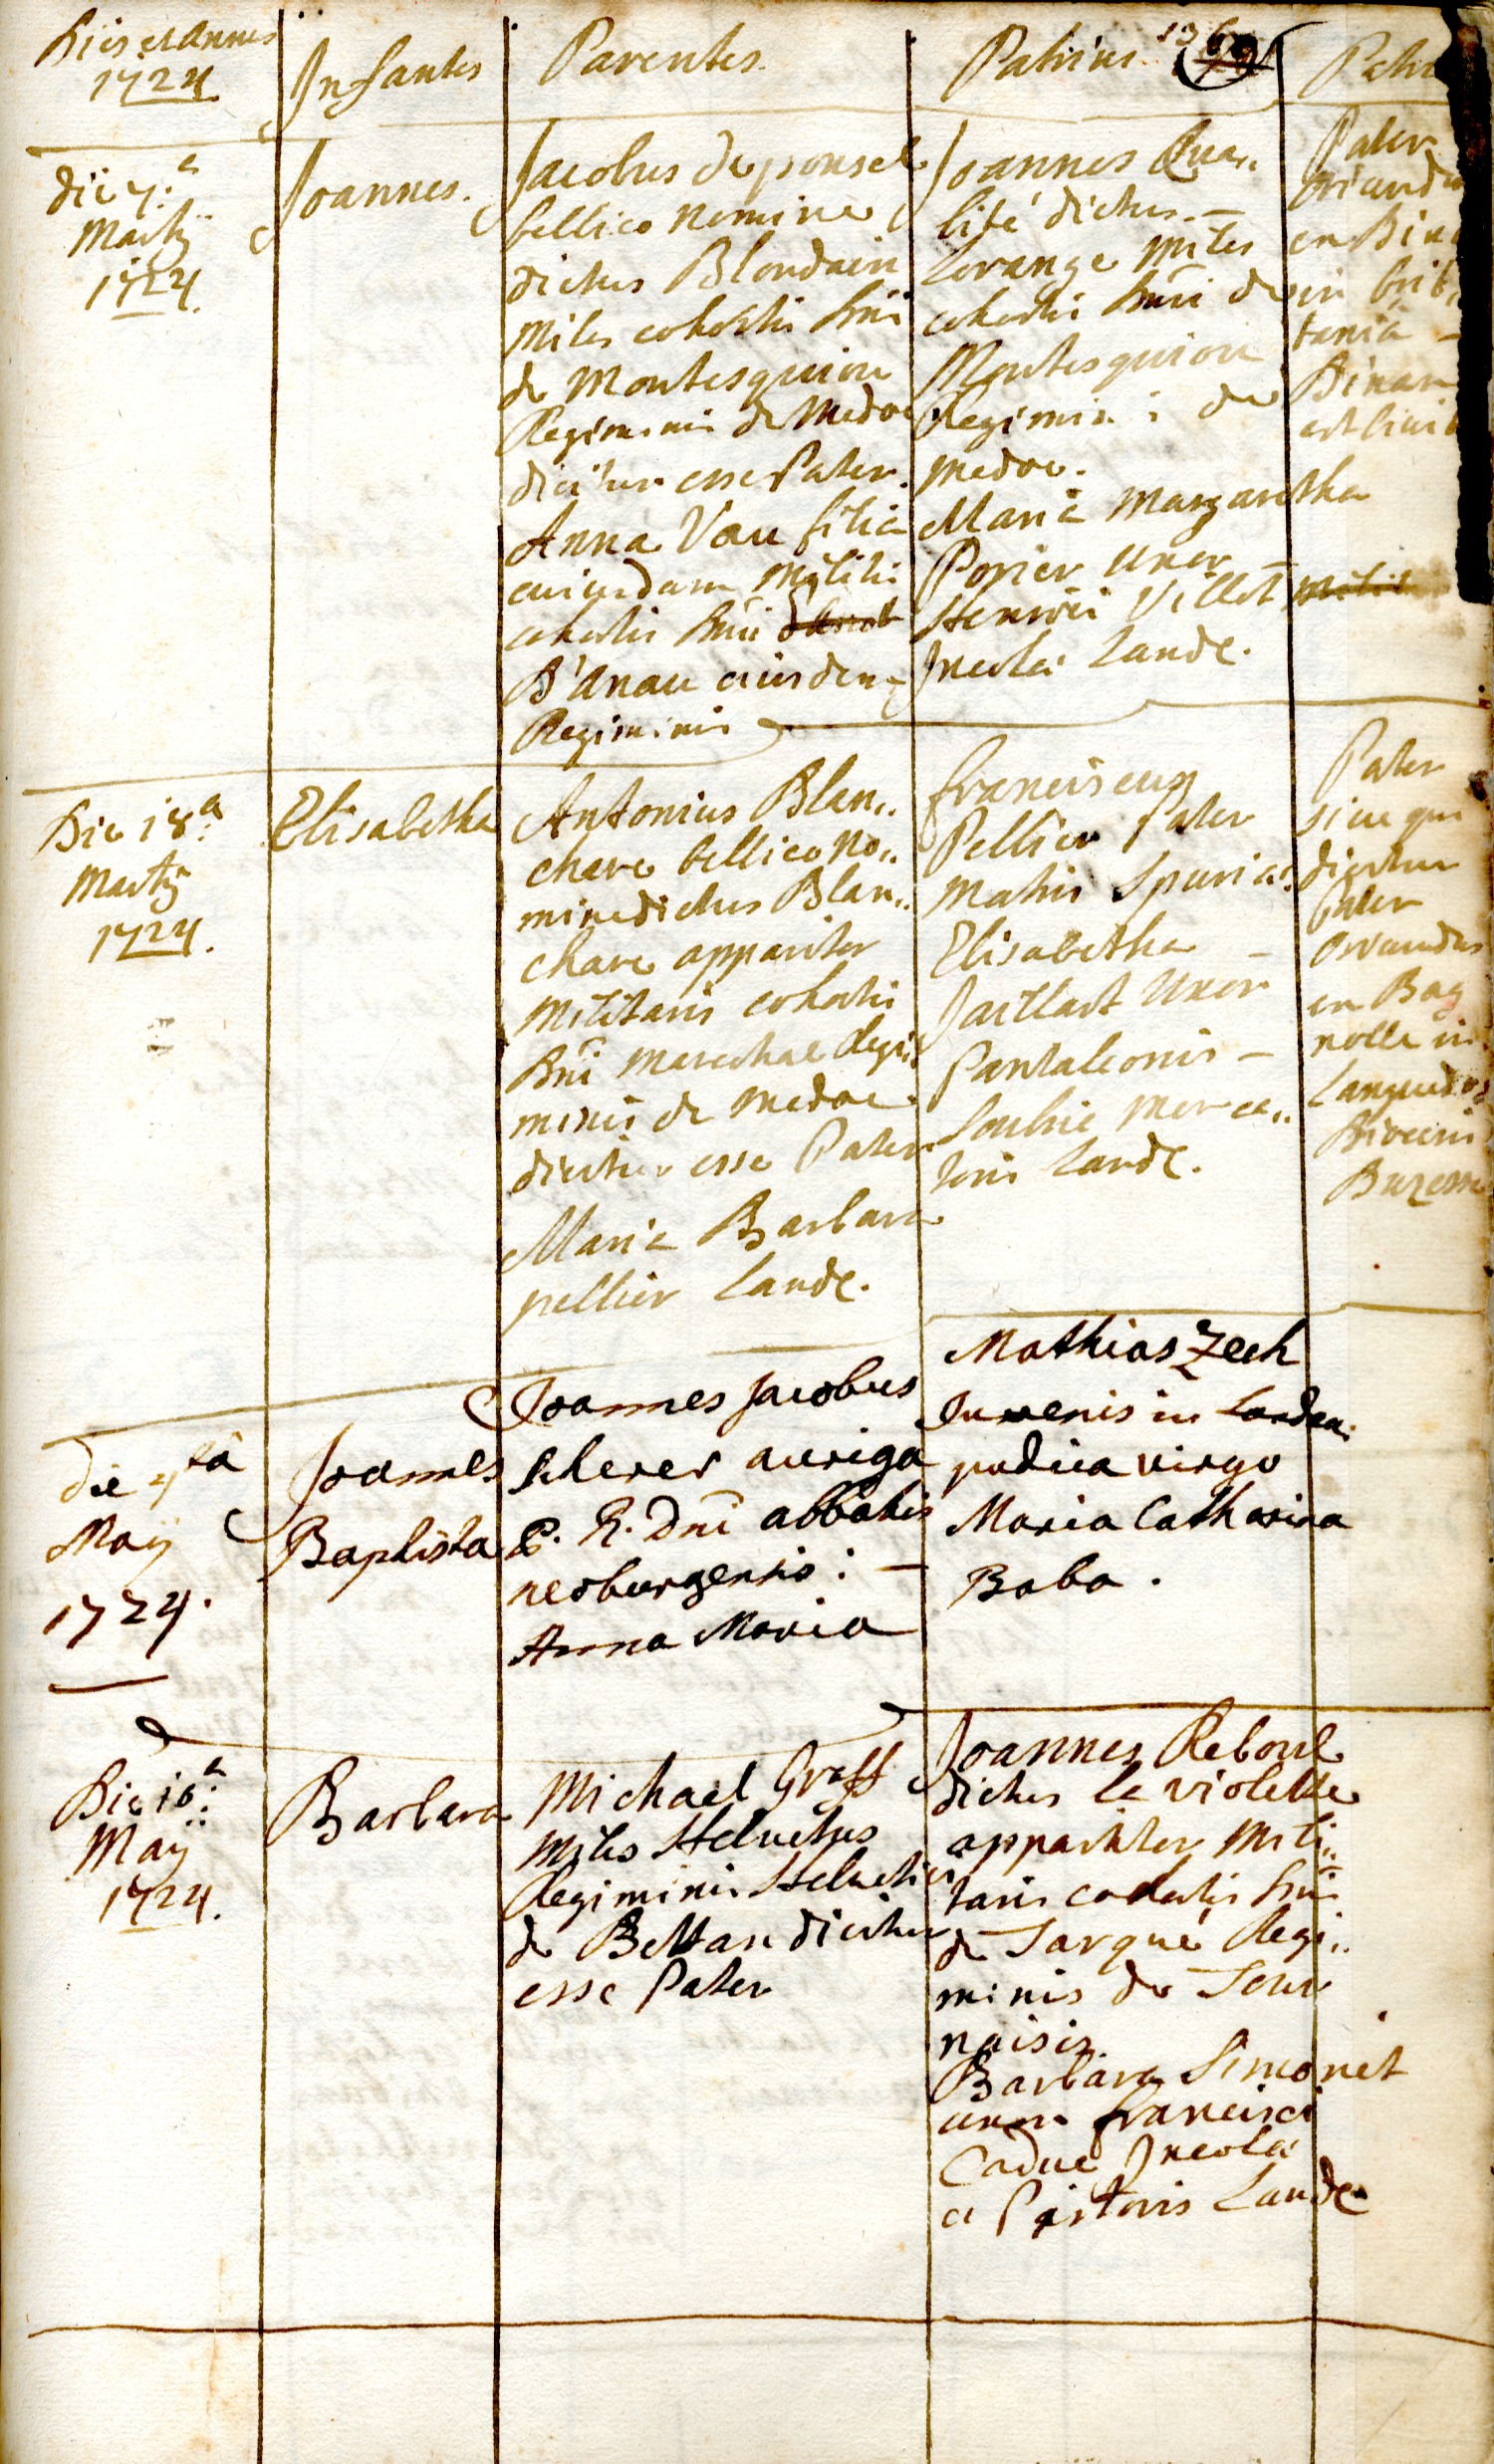 Dies et Annus
1724
Infantes
Parentes
Patrini
Patri
die 4.a
Martij
1724.
Joannes.
Jacobus deponsel
bellico nomine
dictus Blondain
Miles cohortis Dni
de Montesquiou
Regiminis de Medoc
dicitur esse Pater.
Anna Vau filia
cuiusdam Militis
cohortis Dni
D'Anau eiusdem
Regiminis
Joannes Qua,,
lité dictus
Lorange Miles
cohortis Dni de
Montesquiou
Regimini de
Medoc.
Maria Margaretha
Porier Uxor
Henrici Villot
Incolæ Landæ.
Pater
oriund
en Din
in Brit
tania
Dinan
est Civit
Die 18.a
Martij
1724.
Elisabetha
Antonius Blan,,
chare bellico No,,
mine dictus Blan,,
chare appariter
Militaris cohortis
Dni Marechal Regi,,
minis de Medoc
dicitur esse Pater
Maria Barbara
pellier Landæ.
Franciscus
Pellier Pater
Matris Spuriæ.
Elisabetha
Jaillart Uxor
Pantaleonis
Soulrie Merca,,
toris Landæ.
Pater
sive qui
dicitur
Pater
oriundus
en Bag
nolle in
Langued
Die 4ta
May
1724.
Joannes
Baptista
Joannes Jacobus
scherer auriga
P. R. Dni abbatis
neoburgensis:
Anna Maria
Mathias Zech
Juvenis in Landau
pudica virgo
Maria Catharina
Baba.
Die 16.a
May
1724.
Barbara
Michael Graff
Miles Helvetus
Regiminis Helvetici
de Bettan dicitur
esse Pater
Joannes Reboul
dictus la violette
appariter Mili,,
taris cohortis Dni
de Sarqué Regi,,
minis de Tour
naisis.
Barbara Simonet
uxor Francisci
Caduc Incolæ
et Pistoris Landæ